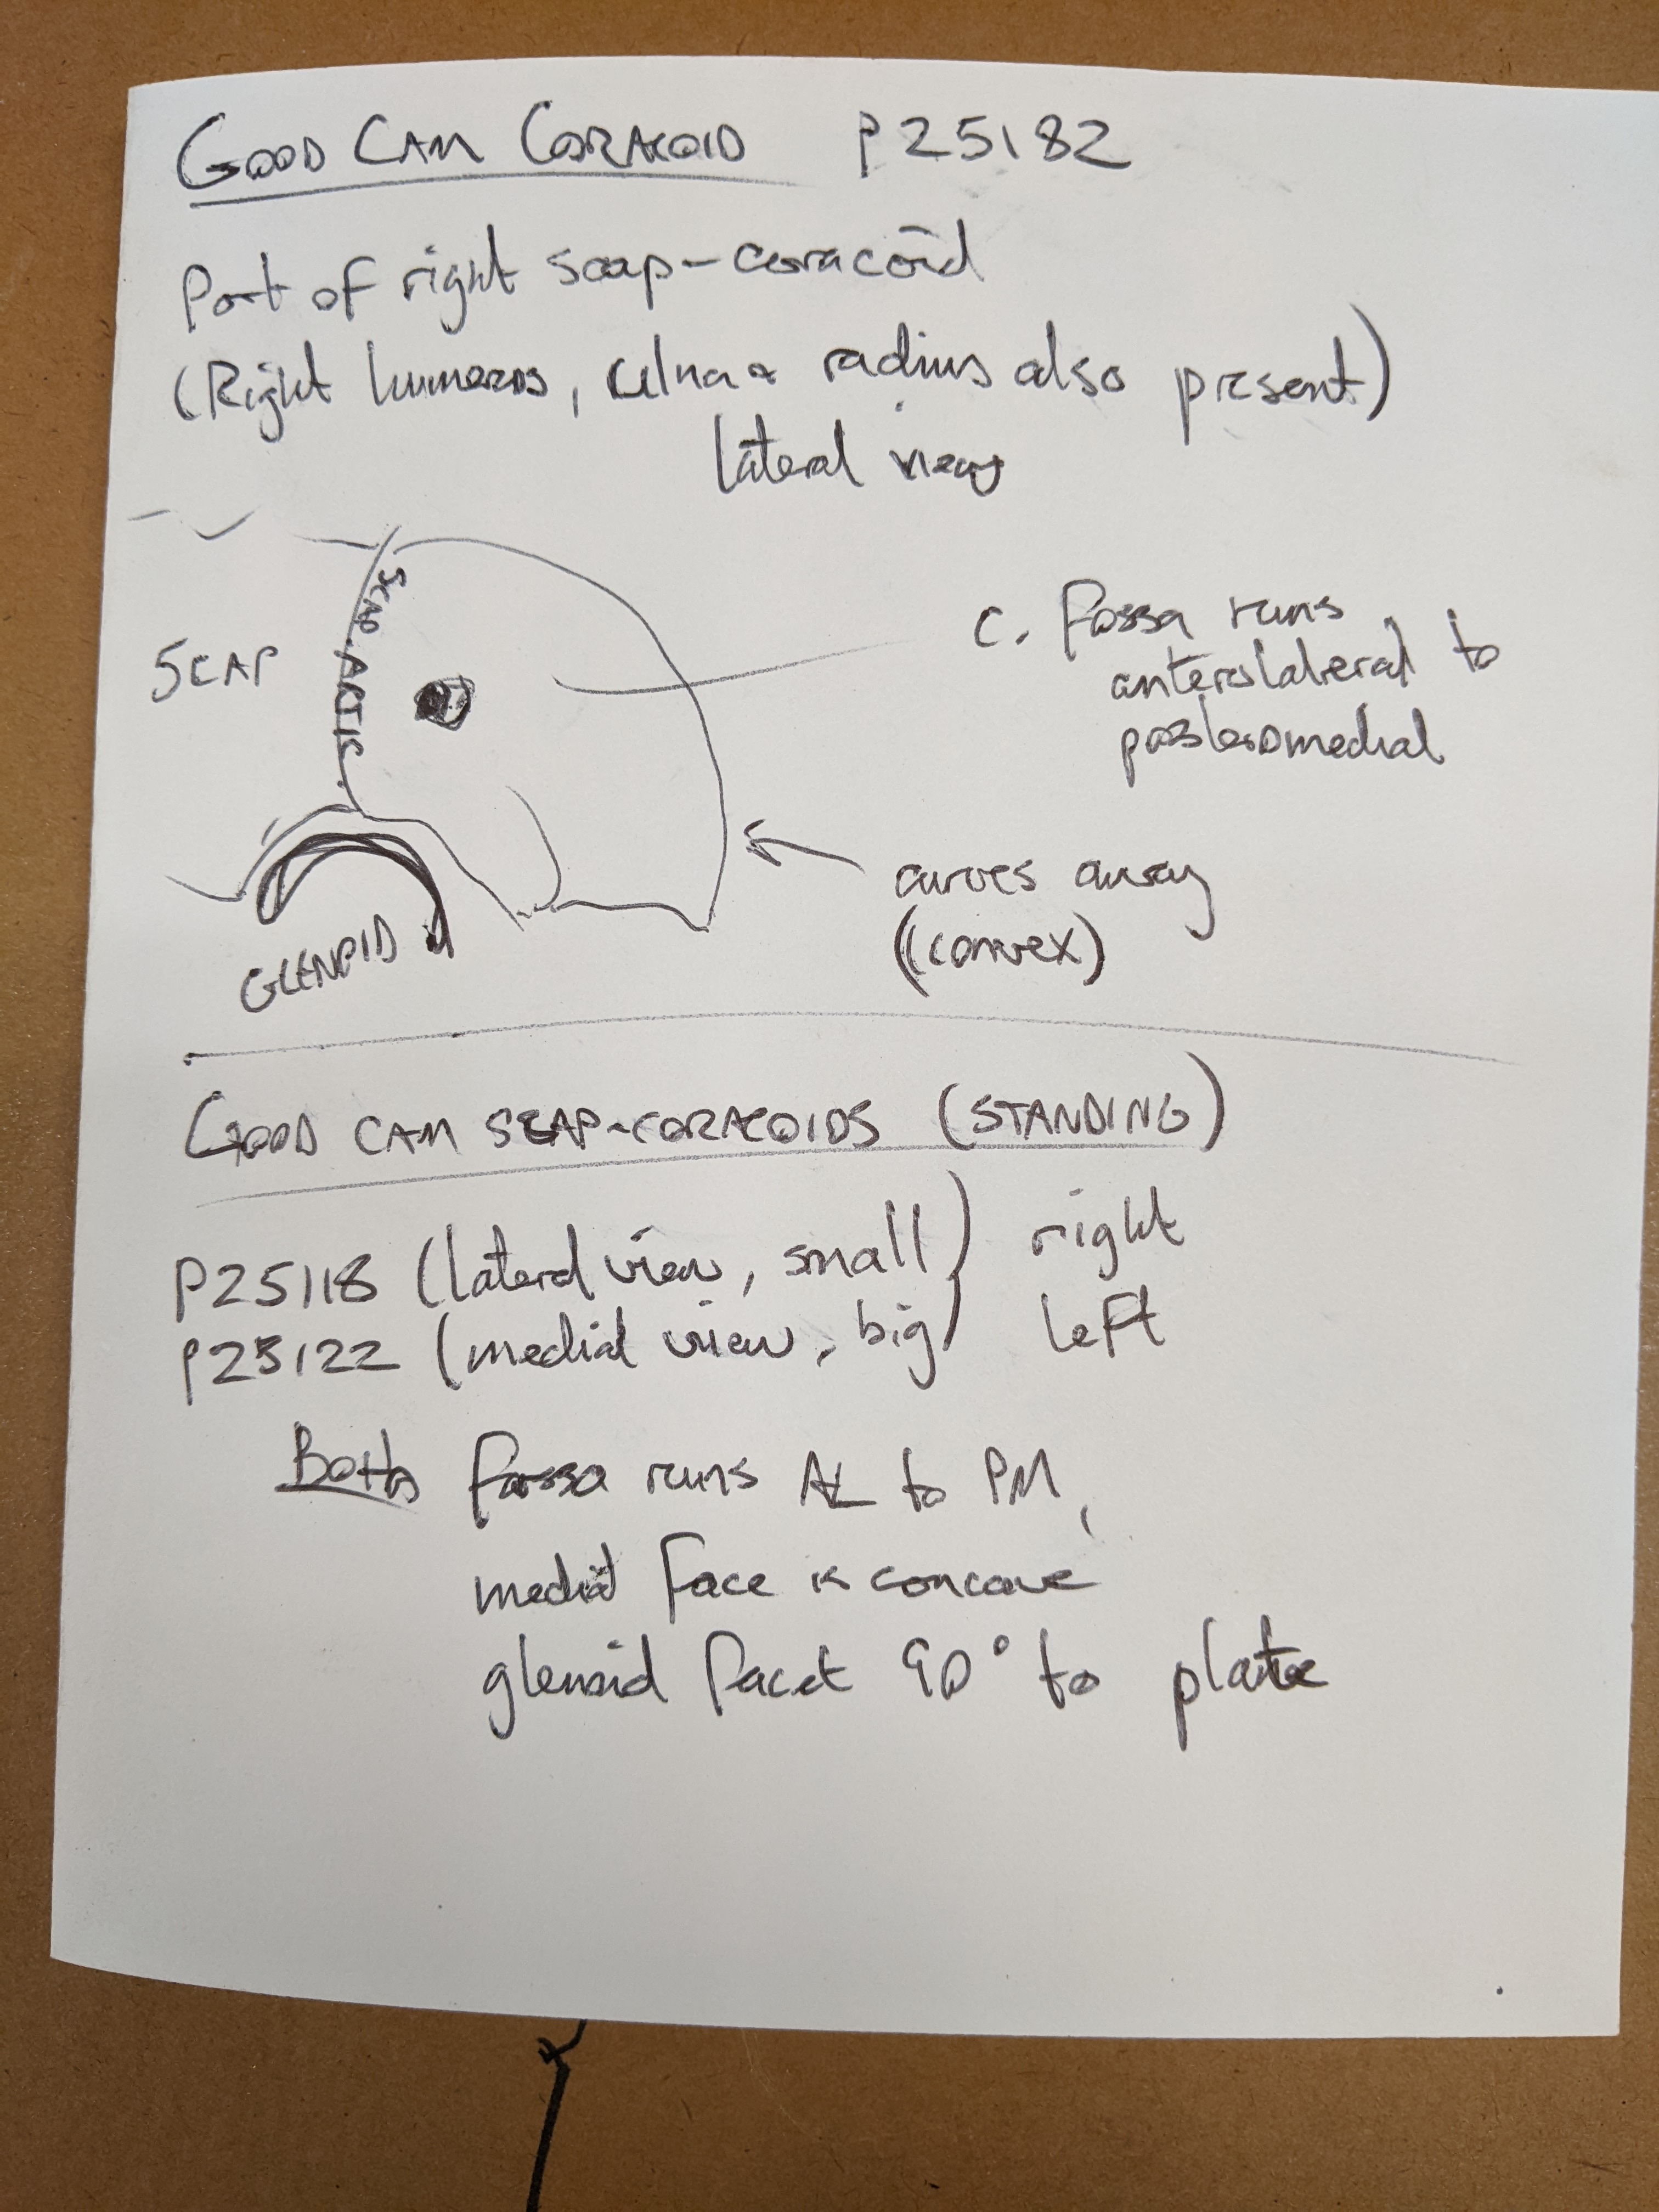 GOOD CAM CORACOID P25182
Part of right scap-coracoid
(Right humerus, ulna + radius also present)
lateral view
SCAP. ARTIC.
SCAP
C. fossa runs
anterolateral to
posteromedial
curves away
(convex)
GLENOID
GOOD CAM SCAP-CORACOIDS (STANDING)
P25118 (lateral view, small) right
P25122 (medial view, big) left
Both fossa runs AL to PM,
medial face is concave
glenoid facet 90° to plate